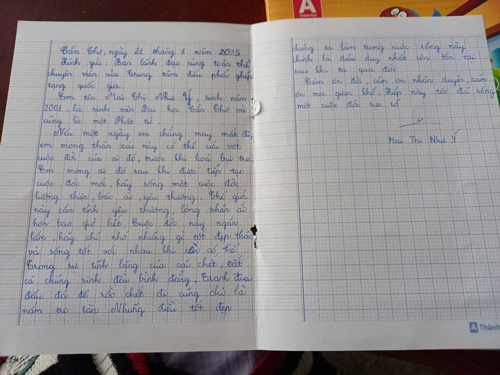 Cần Thơ, ngày 21 tháng 1 năm 2025
Kính gửi: Ban lãnh đạo cùng toàn thể
chuyên viên của Trung tâm điều phối ghép
tạng quốc gia.
Em tên Mai Thị Như Ý, sinh năm
2001, là sinh viên Đại học Cần Thơ và
cũng là một Phật tử.
Nếu một ngày em chẳng may mất đi,
em mong thân xác này có thể cứu vớt
cuộc đời của ai đó, trước khi hoá bụi tro.
Em mong ai đó sau khi được tiếp tục
cuộc đời mới, hãy sống một cuộc đời
lương thiện, bác ái, yêu thương. Thế giới
này cần tình yêu thương, lòng nhân ái
hơn bao giờ hết. Cuộc đời này ngắn
lắm, hãy chỉ nhớ những gì tốt đẹp thôi
và sống tốt với nhau khi còn có thể.
Trong sự tĩnh lặng của cái chết, tất
cả chúng sinh đều bình đẳng. Tranh đua
đấu đá để rồi chết đi cũng chỉ là
nắm tro tàn. Những điều tốt đẹp
chúng ta làm trong cuộc sống này
chính là điều duy nhất còn tồn tại
sau khi ta qua đời.
Cảm ơn đời, cảm ơn nhân duyên, cảm
ơn mọi gian khổ. Kiếp này tôi đã sống
một cuộc đời rực rỡ.
Mai Thị Như Ý
A
A Thành